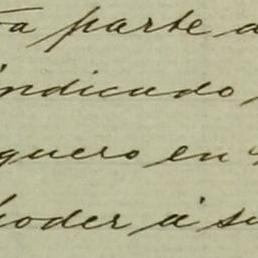 parte
indicado
quero en
poder á su